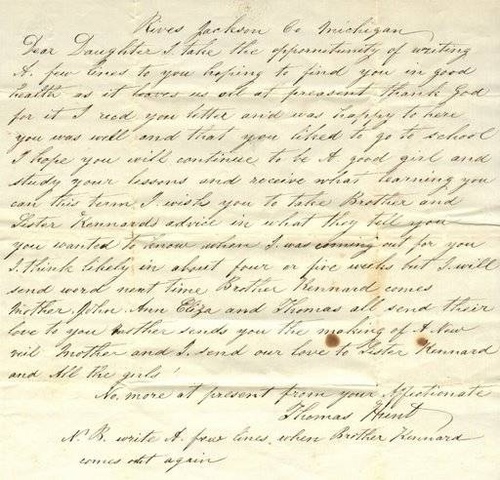 Rives Jackson Co Michigan
Dear Daughter I take the opportunity of writing
A. few lines to you hoping to find you in good
health as it leaves us all at preasent thank God
for it I recd you letter and was happy to here
you was well and that you liked to go to school
I hope you will continue to be A good girl and
study your lessons and receive what learning you
can this term I wish you to take Brother and
Sister Kennards advice in what they tell you
you wanted to know when I was coming out for you
I think likely in about four or five weeks but I will
send word next time Brother Kennard comes
Mother, John, Ann Eliza and Thomas all send their
love to you Mother sends you the making of A New
veil Mother and I send our love to Sister Kennard
and All the girls
No, more at present from your Affectionate
Thomas Hunt
N. B. write A. few lines, when Brother Kennard
comes out again